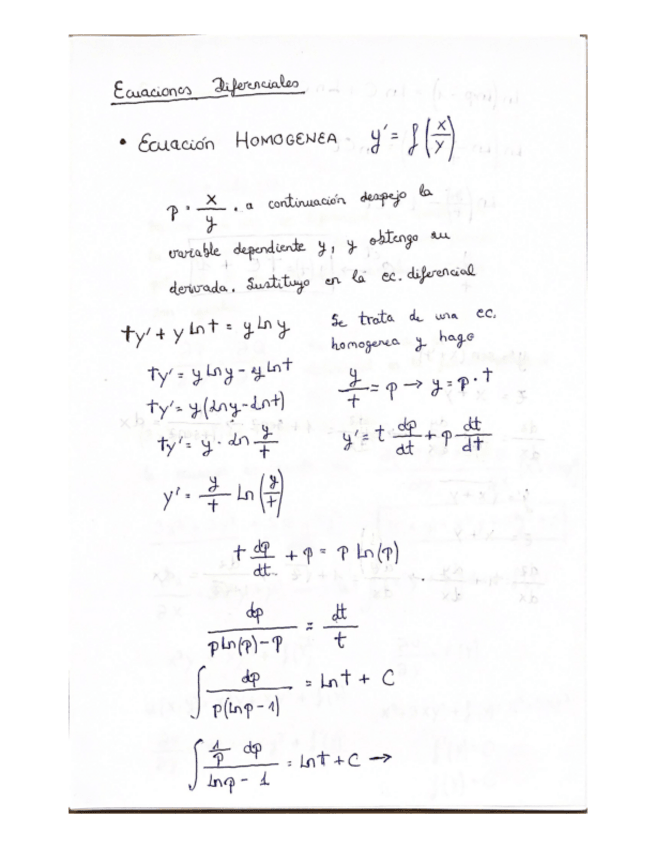 Ecuaciones Diferenciales
• Ecuación HOMOGENEA y' = f(x/y)
p = x/y . a continuación despejo la
variable dependiente y, y obtengo su
derivada. Sustituyo en la ec. diferencial
ty' + y Ln t = y Ln y
Se trata de una ec.
homogenea y hago
ty' = y Ln y - y Ln t
y/t = p → y = p · t
ty' = y(Ln y - Ln t)
ty' = y · Ln y/t
y' = t dp/dt + p dt/dt
y' = y/t Ln (y/t)
t dp/dt + p = p Ln(p)
dp/(p Ln(p) - p) = dt/t
∫ dp/(p(Ln p - 1)) = Ln t + C
∫ (1/p dp)/(Ln p - 1) = Ln t + C →